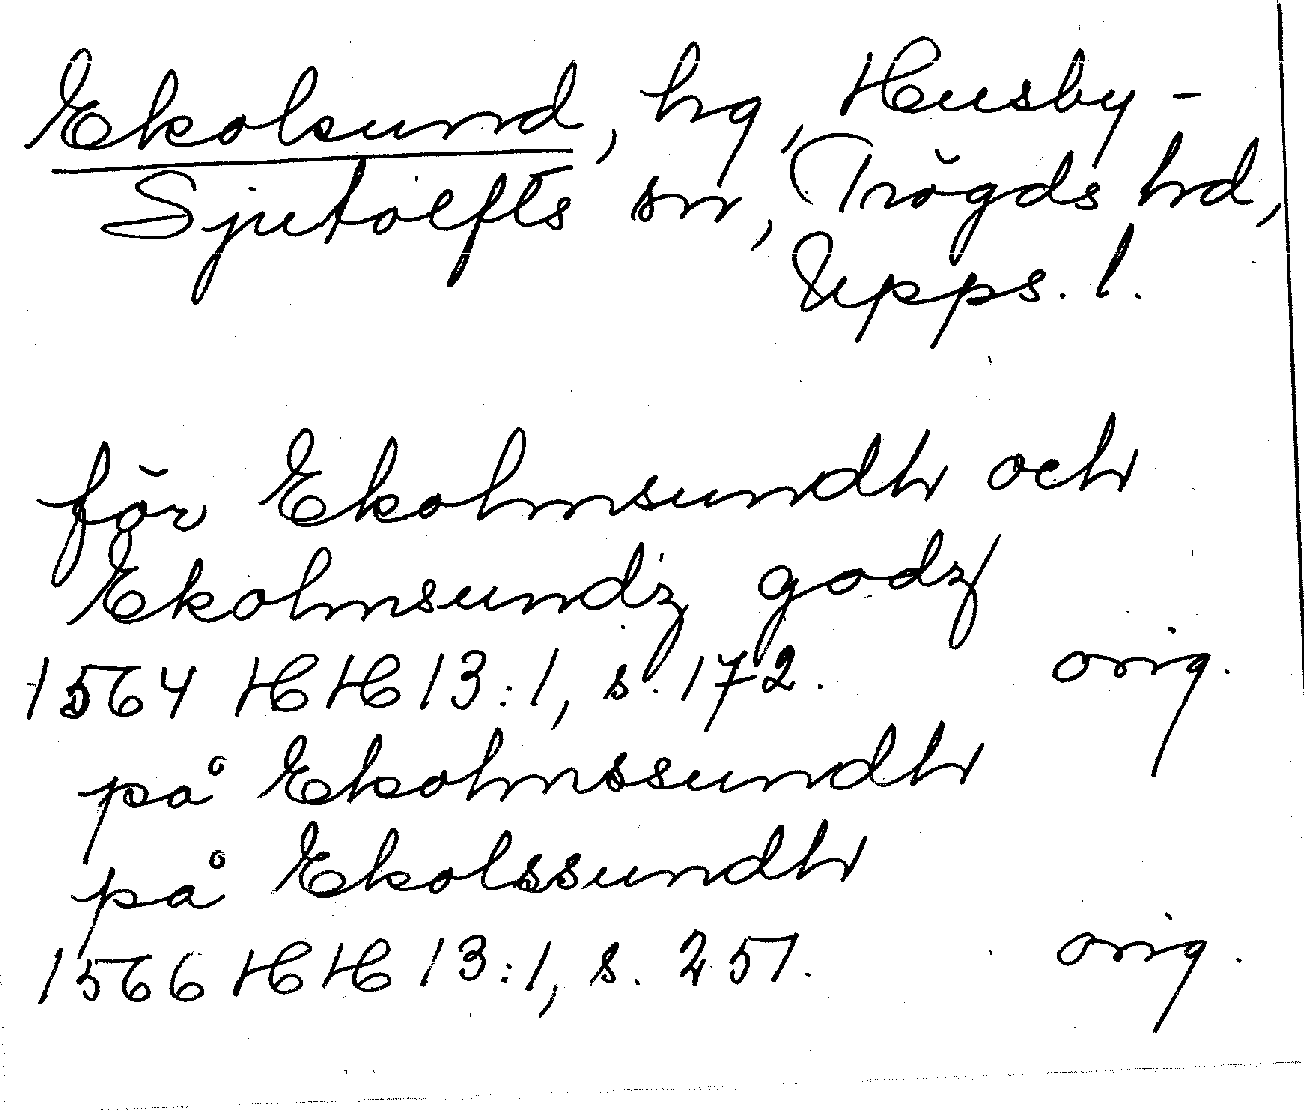 Ekolsund, hg, Husby-
Sjutolfts sn, Trögds hd,
Upps. l.
för Ekolmsundh och
Ekolmsundz godz
1564 HH 13:1, s. 172. orig.
på Ekolmssundh
på Ekolssundh
1566 HH 13:1, s. 251. orig.